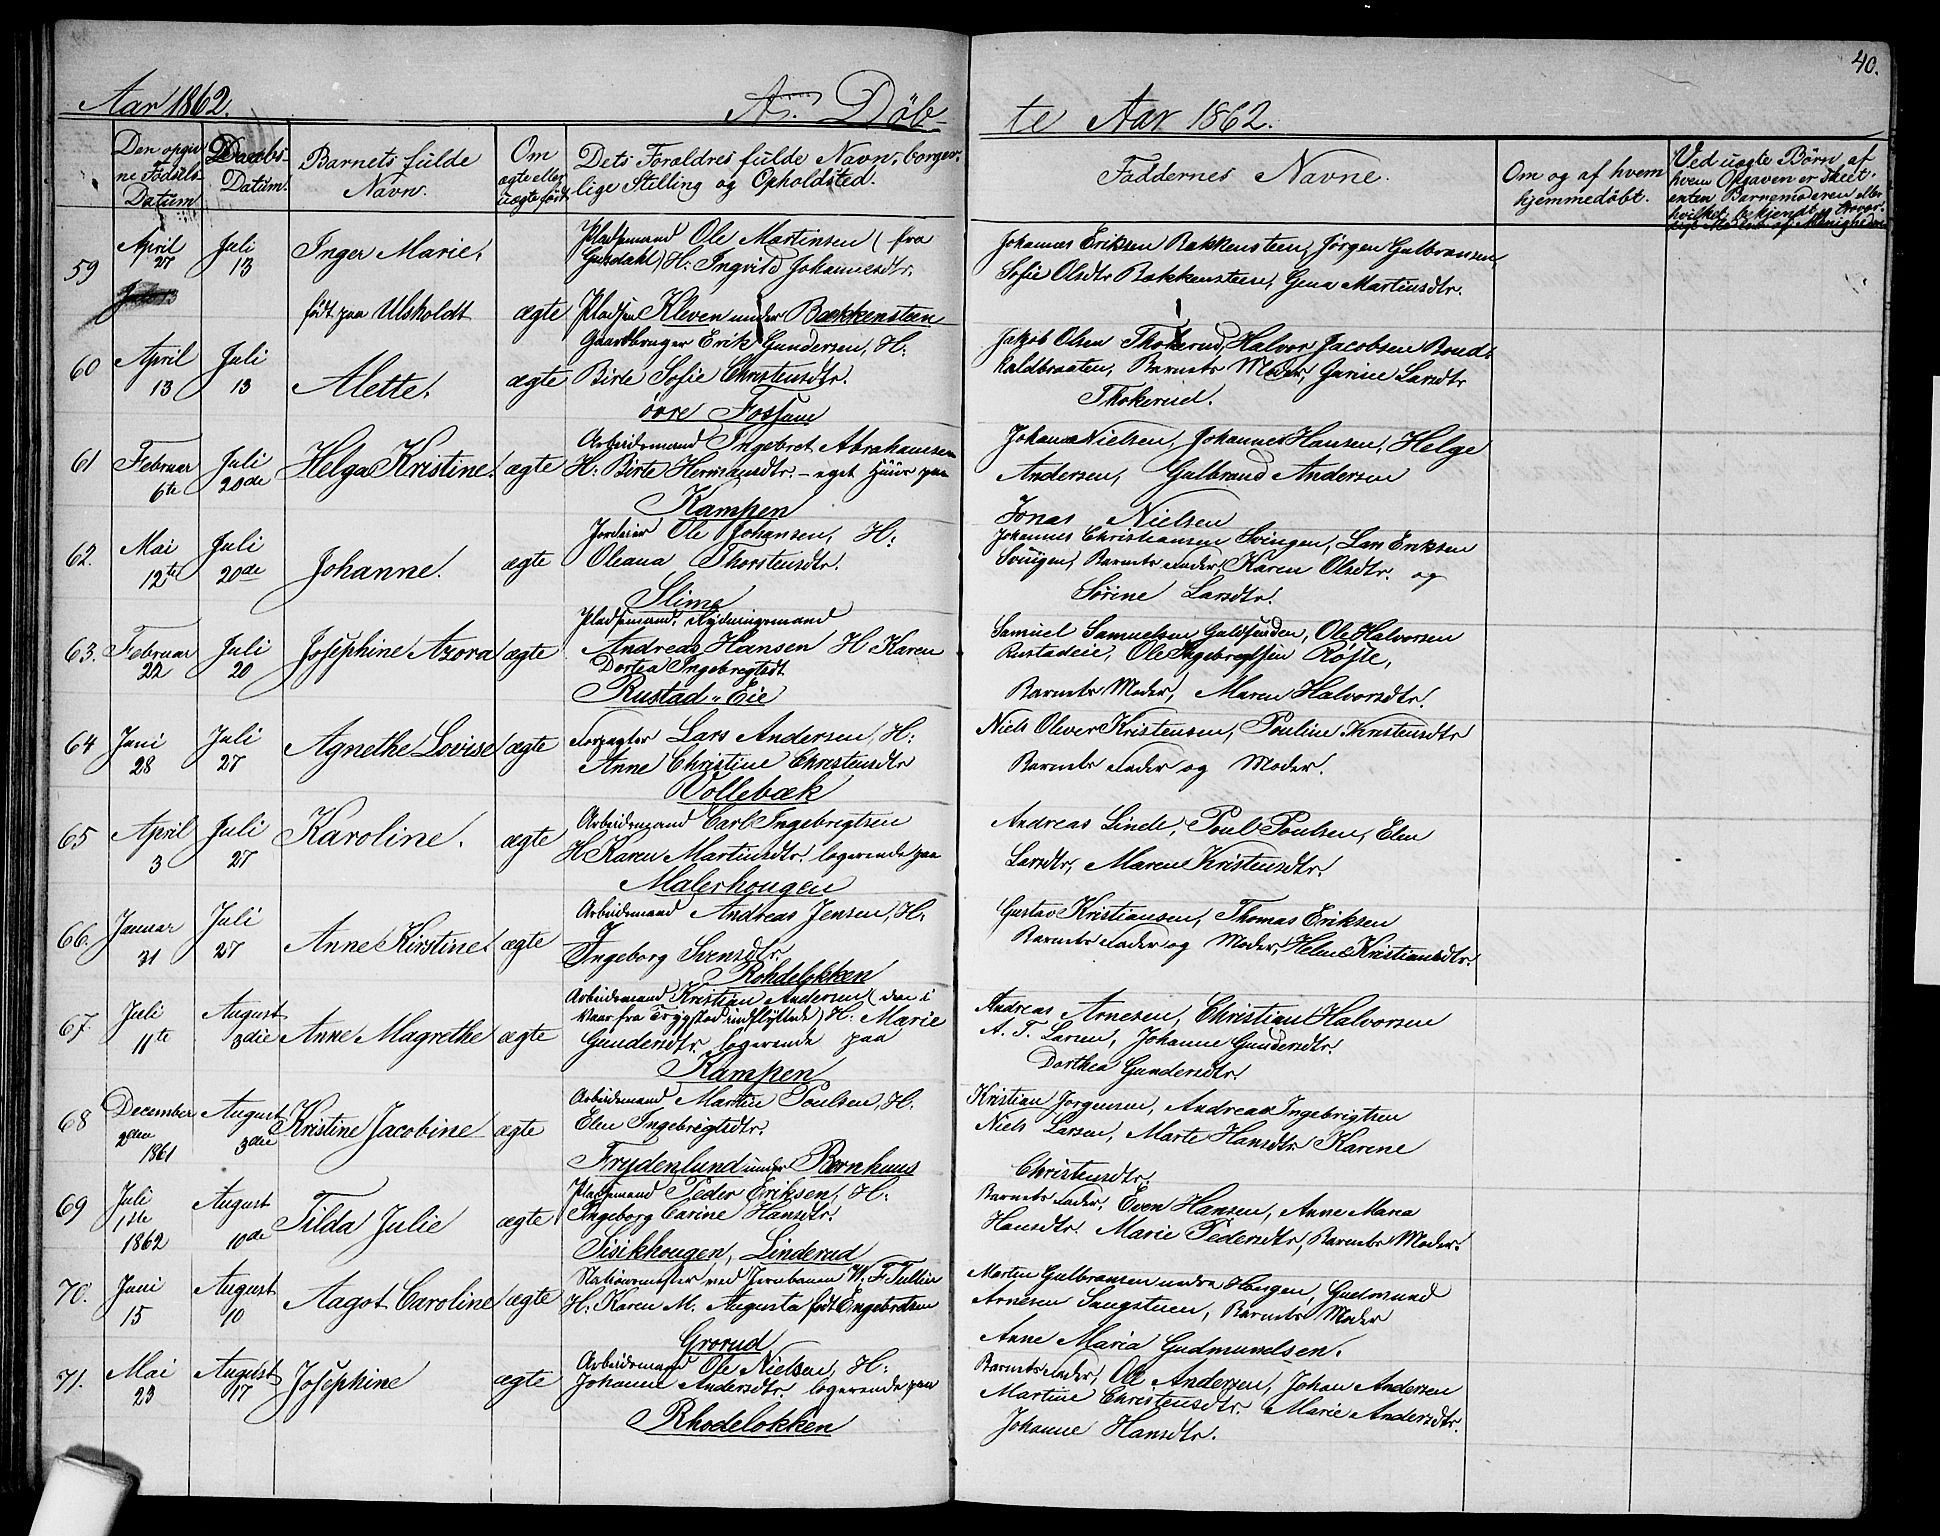 40.
Aar 1862. A. Døb-
te Aar 1862.
Den opgiv
ne Fødsels-
Datum
Daabs-
Datum.
Barnets fulde
Navn.
Om
ægte eller
uægte født
Dets Forældres fulde Navn, borger-
lige Stilling og Opholdsted.
Faddernes Navne.
Om og af hvem
hjemmedøbt.
Ved uægte Børn af
hvem Opgaven er skeet
enten Barnemoderen eller
hvilket bekjendt og trovær-
digt Medlem af Menigheden
59
April
27
Juli
13
Inger Marie.
født paa Ulsholdt
ægte
Pladsmand Ole Martinsen (fra
Gusdahl) H: Ingvild Johannesdtr.
Pladsen Kleven under Bækkensteen
Johannes Eriksen Bakkensteen, Jørgen Gulbransen,
Sofie Olsdtr Bakkensteen, Gena Martinsdtr.
60
April
13
Juli
13
Alette.
ægte
Gaardbruger Erik Gundersen, H:
Birte Sofie Christensdtr.
övre Fossum
Jakob Olsen Thokerud, Halvor Jacobsen Bond-
kaldbraaten, Barnets Moder, Gurine Larsdtr
Thokerud.
61
Februar
6te
Juli
20de
Helga Kristine.
ægte
Arbeidsmand Ingebret Abrahamsen
H: Birte Hermansdtr. - eget Huus paa
Kampen
Johan Nielsen, Johannes Hansen, Helge
Andersen, Gulbrand Andersen
Jonas Nielsen
62.
Mai
12te
Juli
20de
Johanne.
ægte
Jordeier Ole Johansen, H:
Oleana Thorstensdtr.
Slime
Johannes Christiansen Svingen, Lars Eriksen
Svingen, Barnets Fader, Karen Olsdtr. og
Sørine Larsdtr.
63.
Februar
22
Juli
20
Josephine Azora
ægte
Pladsmand, Rydningsmand
Andreas Hansen H Karen
Dortea Ingebregtsdt
Rustad-Eie
Samuel Samuelsen, Ole Halvorsen
Rustadeie, Ole Ingebregtsen Røste,
Barnets Moder, Maren Halvorsdtr.
64
Juni
28
Juli
27
Agnethe Lovise
ægte
Forpagter Lars Andersen, H:
Anne Christine Christensdtr
Vollebæk
Niels Oliver Kristensen, Pauline Kristensdtr
Barnets Fader og Moder.
65
April
3
Juli
27
Karoline.
ægte
Arbeidsmand Carl Ingebrigtsen
H Karen Martinsdtr. logerende paa
Malerhougen
Andreas Linde, Poul Poulsen, Elen
Larsdtr, Maren Kristensdtr.
66.
Januar
31
Juli
27
Anne Kirstine.
ægte
Arbeidsmand Andreas Jensen, H:
Ingeborg Svensdtr.
Rohdeløkken
Gustav Kristiansen, Thomas Eriksen
Barnets Fader og Moder, Helene Kristiansdtr.
67.
Juli
11te
August
3die
Anne Magrethe
ægte
Arbeidsmand Kristian Andersen (den i
Vaar fra Trygstad indflyttede) H: Marie
Gundersdtr. logerende paa
Kampen
Andreas Arnesen, Christian Halvorsen
A. T. Larsen, Johanne Gundersdtr.
Dorthea Gundersdtr.
68
December
2den
1861
August
3die
Kristine Jacobine
ægte
Arbeidsmand Martin Poulsen, H.
Elen Ingebregtsdtr.
Frydenlund under Bernhuus
Kristian Jørgensen, Andreas Ingebrigtsen
Niels Larsen, Marte Hansdtr Karene
Christensdtr.
69
Juli
1ste
1862
August
10de
Tilda Julie
ægte
Pladsmand Peder Eriksen, H:
Ingeborg Carine Hansdtr.
Sisikhougen, Linderud
Barnets Fader, Even Hansen, Anne Maria
Hansdtr. Marie Pedersdtr, Barnets Moder.
70.
Juni
15
August
10
Aagot Caroline
ægte
Stationsmester ved Jernbanen W. F. Tullin
H: Karen M. Augusta født Engebretsen
Grorud
Martin Gulbransen nedre Haugen, Gudmund
Arnesen Saugstuen, Barnets Moder
Anne Maria Gudmundsen.
71.
Mai
23
August
17
Josephine
ægte
Arbeidsmand Ole Nielsen, H:
Johanne Andersdtr. logerende paa
Rhodeløkken
Barnets Fader, Ole Andersen, Johan Andersen
Martine Christensdtr. Marie Andersdtr.
Johanne Hansdtr.